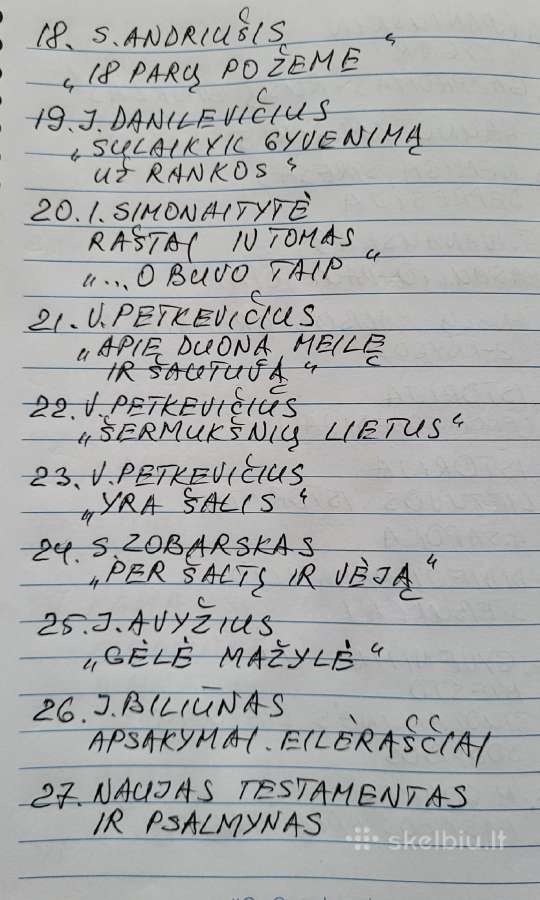 18. S. ANDRIUŠIS
„18 PARŲ POŽEMĖ“
19. J. DANILEVIČIUS
„SULAIKYK GYVENIMĄ
UŽ RANKOS“
20. I. SIMONAITYTĖ
RAŠTAI IV TOMAS
„... O BUVO TAIP“
21. V. PETKEVIČIUS
„APIE DUONĄ MEILĘ
IR ŠAUTUVĄ“
22. V. PETKEVIČIUS
„ŠERMUKŠNIŲ LIETUS“
23. V. PETKEVIČIUS
„YRA ŠALIS“
24. S. ZOBARSKAS
„PER ŠALTĮ IR VĖJĄ“
25. J. AVYŽIUS
„GĖLĖ MAŽYLĖ“
26. J. BILIŪNAS
APSAKYMAI. EILĖRAŠČIAI
27. NAUJAS TESTAMENTAS
IR PSALMYNAS
skelbiu.lt